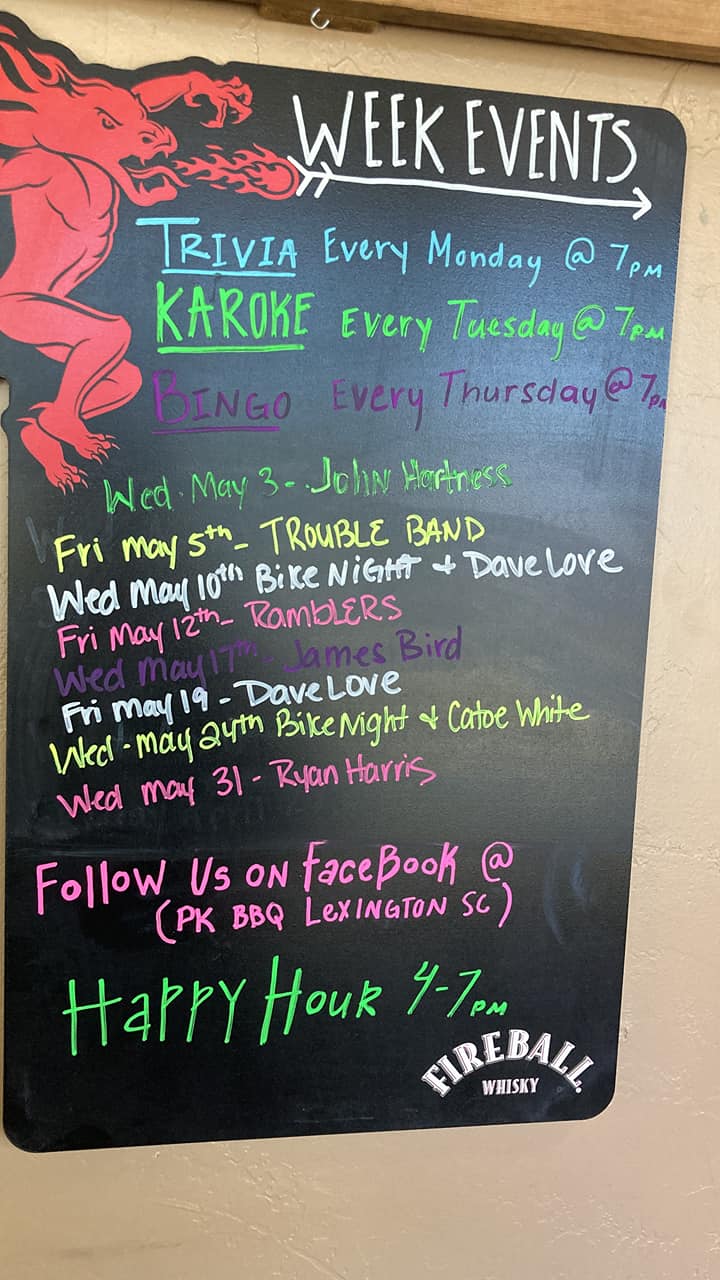 WEEK EVENTS
TRIVIA Every Monday @ 7PM
KAROKE Every Tuesday @ 7PM
BINGO Every Thursday @ 7PM
Wed. May 3 - John Hartness
Fri May 5th - TROUBLE BAND
Wed May 10th Bike NIGHT & Dave Love
Fri May 12th - RAMBLERS
Wed May 17th - James Bird
Fri May 19 - Dave Love
Wed - May 24th Bike Night & Catoe White
Wed May 31 - Ryan Harris
Follow Us ON FaceBook @
(PK BBQ LEXINGTON SC)
Happy Hour 4-7PM
FIREBALL
WHISKY